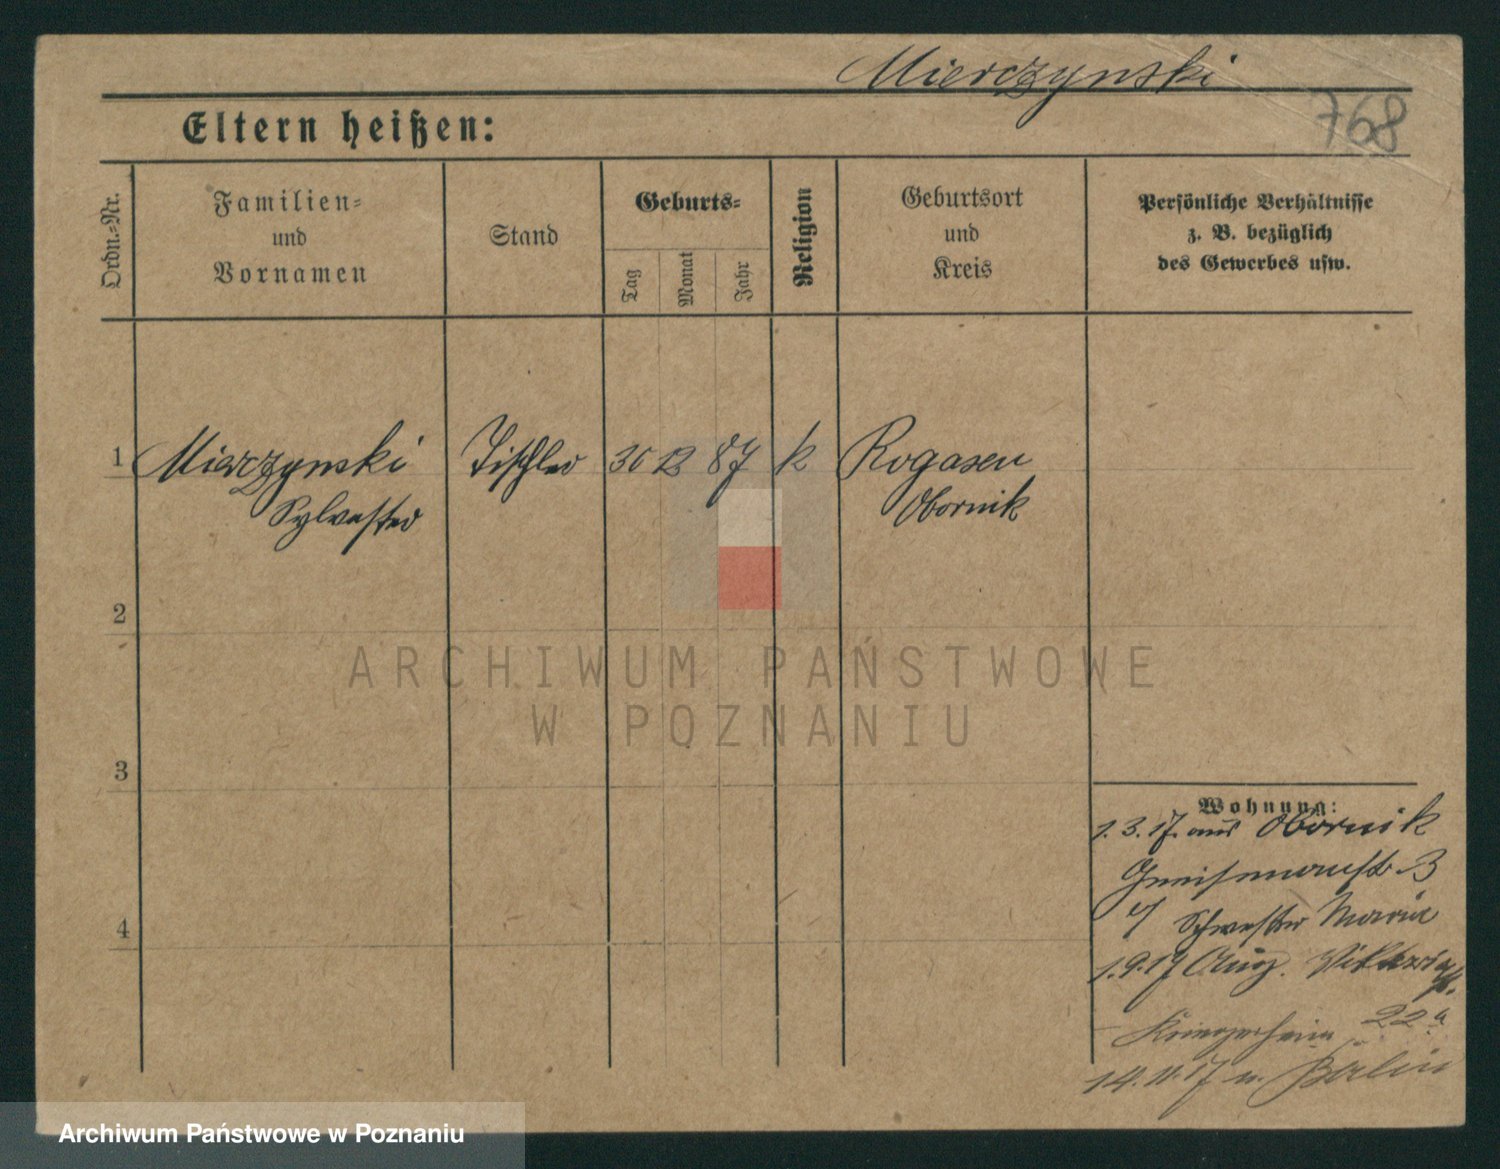 Mierczynski
768
Eltern heißen:
Ordn.-Nr.
Familien-
und
Vornamen
Stand
Geburts-
Tag
Monat
Jahr
Religion
Geburtsort
und
Kreis
Persönliche Verhältnisse
z. B. bezüglich
des Gewerbes usw.
1 Mierczynski Tischler 30 12 87 k Rogasen
Sylvester Obornik
2
3
4
Wohnung:
1.3.17. aus Obornik
Gneisenaustr 3
b/ Schwester Maria
1.9.17 Viktoriastr.
22a
14.11.17 n. Berlin
ARCHIWUM PAŃSTWOWE
W POZNANIU
Archiwum Państwowe w Poznaniu